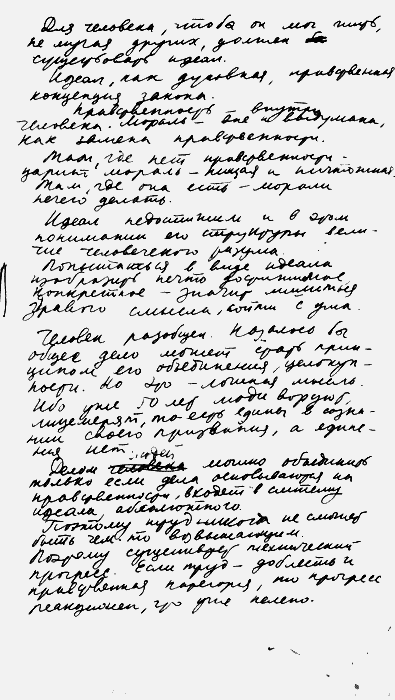 Для человека, чтобы он мог жить,
не мучая других, должен
существовать идеал.
Идеал, как духовная, нравственная
концепция закона.
Нравственность внутри
человека. Мораль вне и выдумана,
как замена нравственности.
Там, где нет нравственности –
царит мораль – нищая и ничтожная.
Там, где она есть – морали
нечего делать.
Идеал недостижим и в этом
понимании его структуры вели-
чие человеческого разума.
Попытаться в виде идеала
изобразить нечто достижимое,
конкретное – значит лишиться
здравого смысла, сойти с ума.
Человек разобщен. Казалось бы
общее дело может стать прин-
ципом его объединения, целокуп-
ности. Но это – ложная мысль.
Ибо уже 50 лет люди воруют,
лицемерят, то есть едины в созна-
нии своего призвания, а едине-
ния нет. людей
Делом можно объединить
только если дела основываются на
нравственности, входят в систему
идеала, абсолютного.
Поэтому труд никогда не сможет
быть чем-то возвышающим.
Поэтому существует технический
прогресс. Если труд – доблесть и
нравственная категория, то прогресс
реакционен, что уже нелепо.